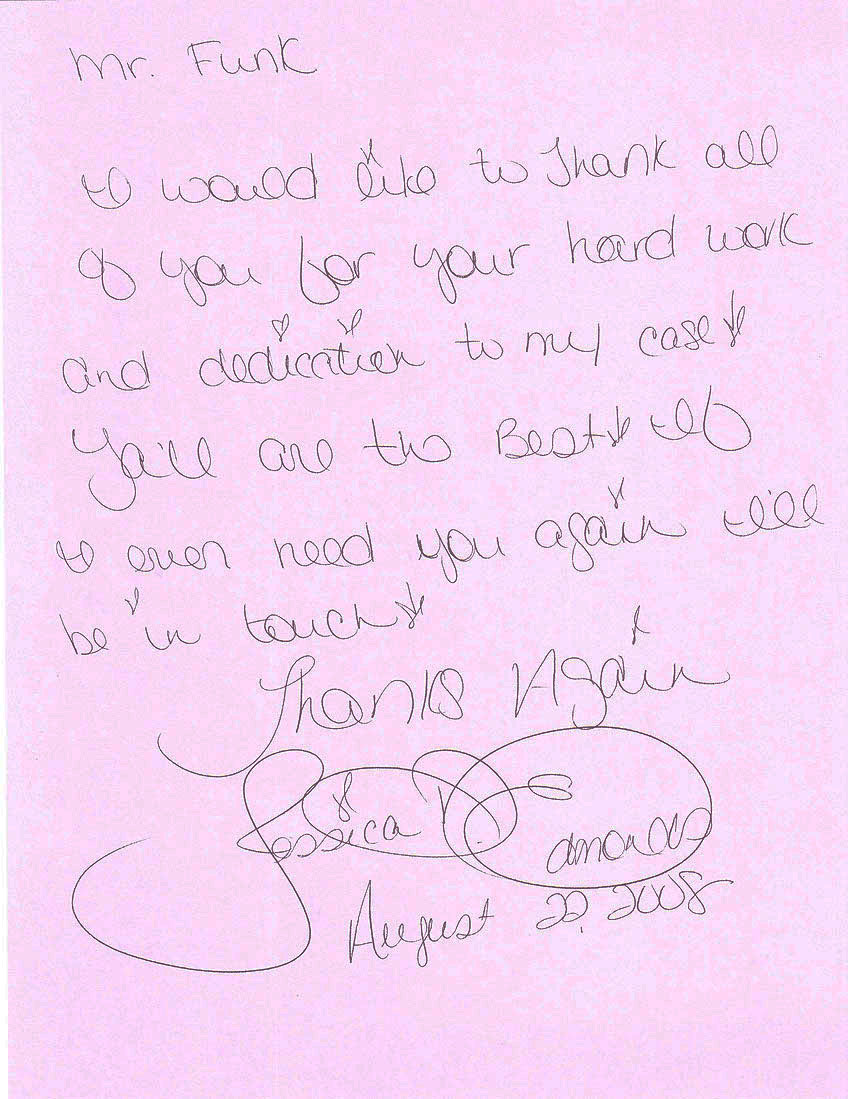 Mr. Funk
I would like to Thank all
of you for your hard work
and dedication to my case!
Ya'll are the Best! If
I ever need you again I'll
be in touch!
Thanks Again
Jessica D.
August 22, 2008